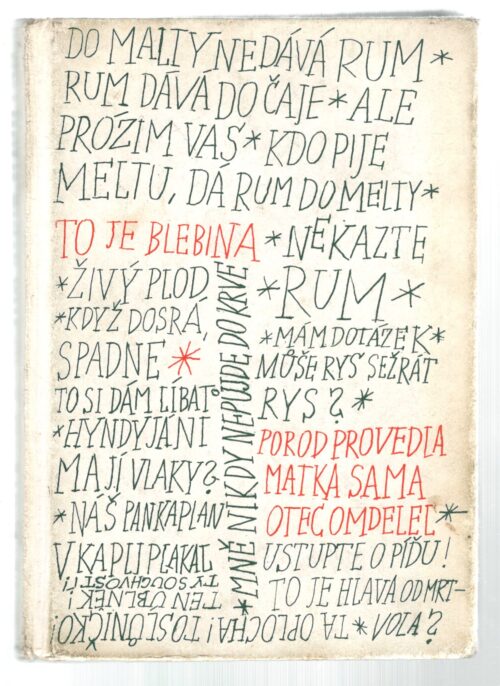 DO MALTY NEDÁVÁ RUM *
RUM DÁVÁ DO ČAJE * ALE
PRÓZIM VÁS * KDO PIJE
MELTU, DÁ RUM DO MELTY *
TO JE BLEBINA * NEKAZTE
* ŽIVÝ PLOD
* KDYŽ DOSRÁ,
SPADNE *
TO SI DÁM LÍBAT
* HYNDYJÁNI
MAJÍ VLAKY?
* NÁŠ PAN KAPLAN
V KAPLI PLAKAL
* MNĚ NIKDY NEPŮJDE DO KRVE
* RUM *
* MÁM DOTÁZEK *
MŮŠE RYS SEŽRÁT
RYS? *
POROD PROVEDLA
MATKA SAMA
OTEC OMDELEL *
USTUPTE O PÍĎU!
TO JE HLAVA OD MRT-
VOLA? *
TA OPLOCHA! TO SLŮNÍČKO!
TEN ÚBLNEK!
TY SOUCHOSTI!